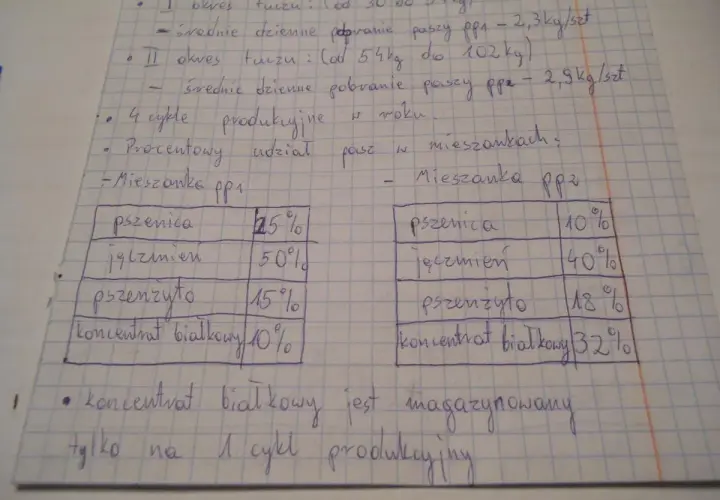 • I okres tuczu: (od 30 do
– średnie dzienne pobranie paszy pp1 – 2,3kg/szt
• II okres tuczu: (od 54kg do 102kg)
– średnie dzienne pobranie paszy pp2 – 2,9kg/szt
• 4 cykle produkcyjne w roku.
• Procentowy udział pasz w mieszankach:
– Mieszanka pp1
pszenica 25%
jęczmień 50%
pszenżyto 15%
koncentrat białkowy 10%
– Mieszanka pp2
pszenica 10%
jęczmień 40%
pszenżyto 18%
koncentrat białkowy 32%
• koncentrat białkowy jest magazynowany
tylko na 1 cykl produkcyjny